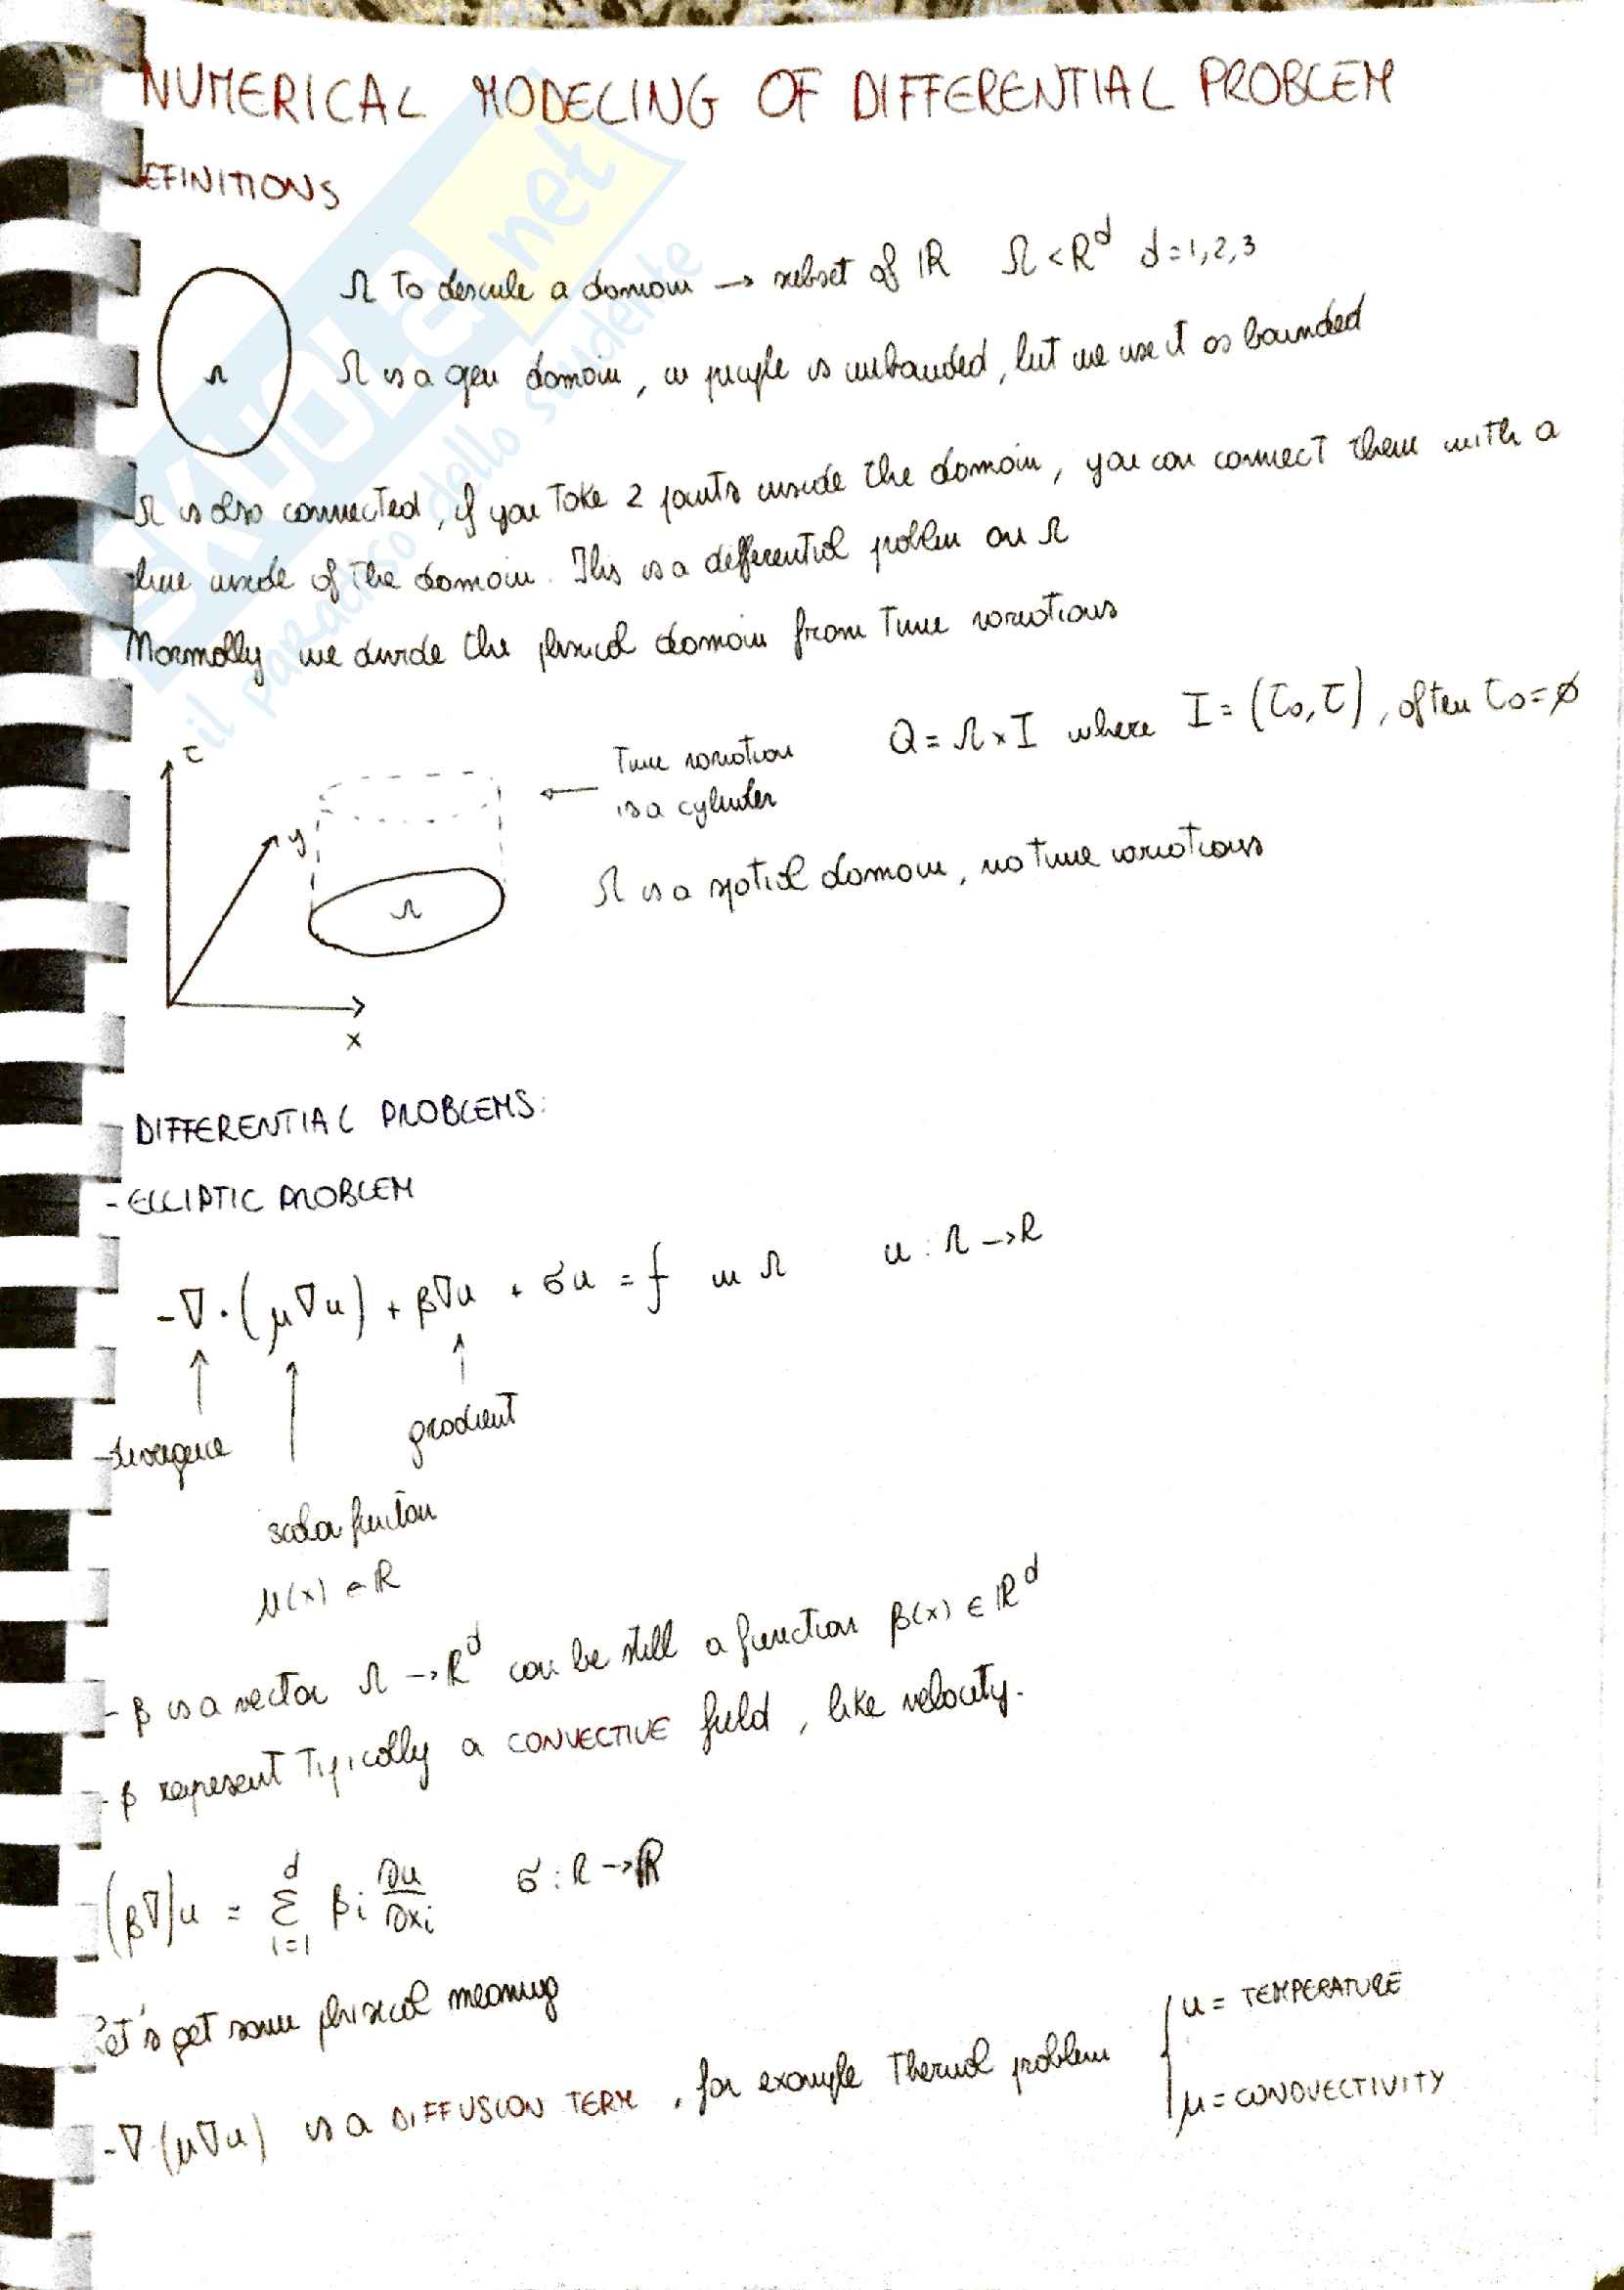 NUMERICAL MODELING OF DIFFERENTIAL PROBLEM
EFINITIONS
Ω To describe a domain → subset of ℝ Ω < R^d d=1,2,3
Ω
Ω is a gen domain, in principle is unbounded, but we use it as bounded
Ω is also connected, if you Take 2 points inside the domain, you can connect them with a
line inside of the domain. This is a differential problem on Ω
Normally we divide the phisical domain from Time variations
Q = Ω × I where I = (τ₀, τ), often τ₀ = ∅
τ
Time variation
is a cylinder
y
Ω
Ω is a spatial domain, no time variations
x
DIFFERENTIAL PROBLEMS:
- ELLIPTIC PROBLEM
-∇·(μ∇u) + β∇u + σu = f in Ω u : Ω → R
divergence
gradient
scalar function
μ(x) ∈ R
- β is a vector Ω → R^d can be still a function β(x) ∈ ℝ^d
- β represent Typically a CONVECTIVE field, like velocity.
(β∇)u = Σ_{i=1}^{d} βi ∂u/∂xi σ : Ω → ℝ
Let's get some phisical meaning
-∇·(μ∇u) is a DIFFUSION TERM, for example Thermal problem { u = TEMPERATURE
μ = CONDUECTIVITY
SKUOLA.net
il paradiso dello studente